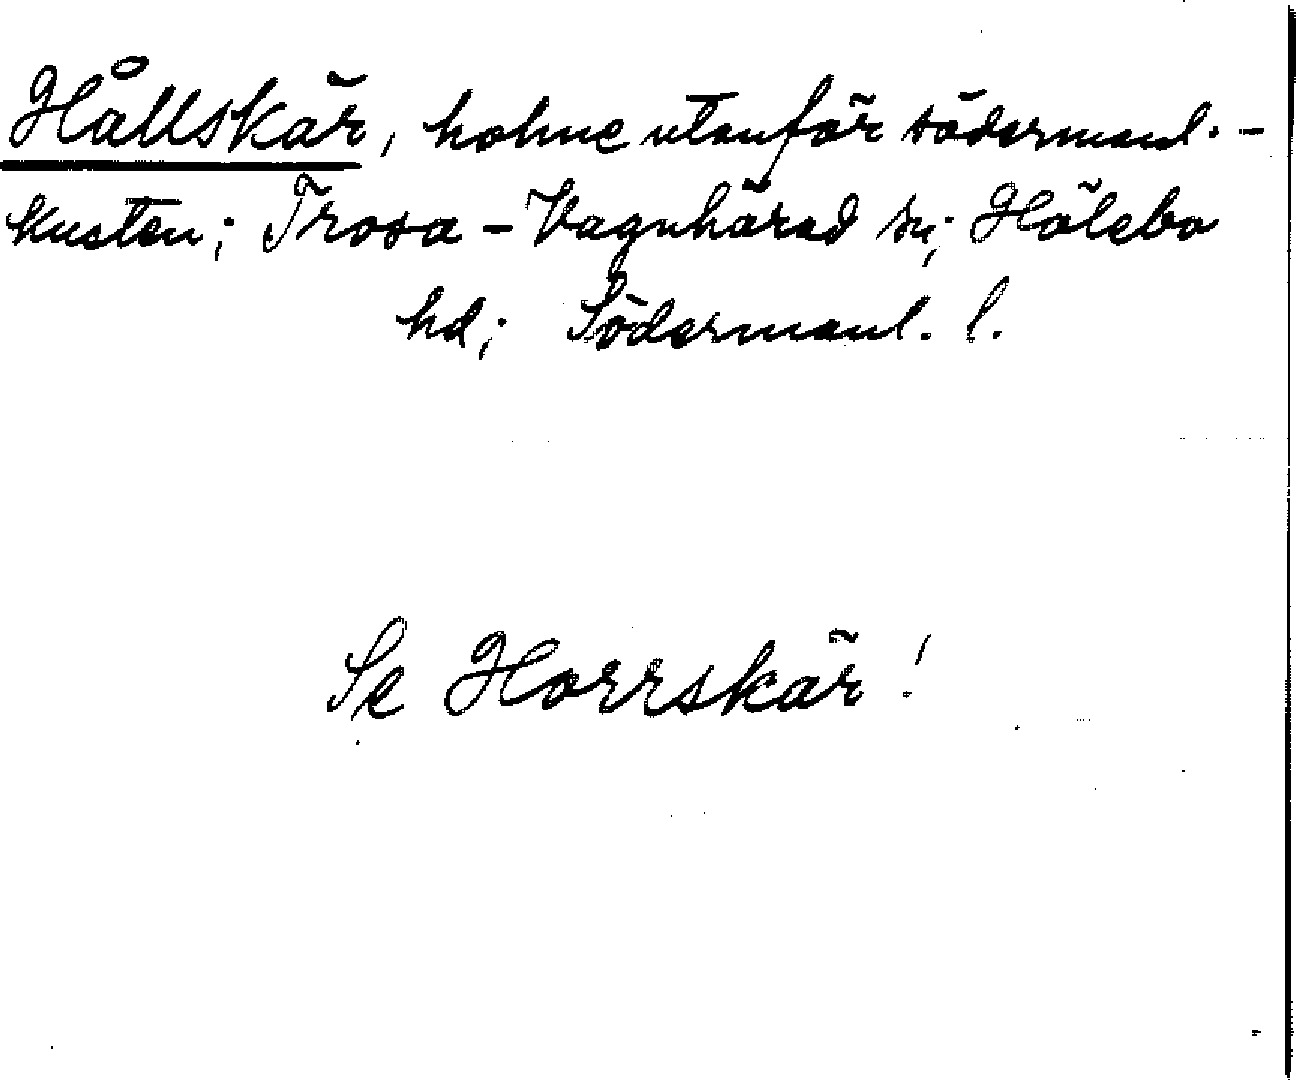 Hållskär, holme utanför södermanl.-
kusten; Trosa-Vagnhärad sn; Hölebo
hd; Södermanl. l.
Se Horrskär!